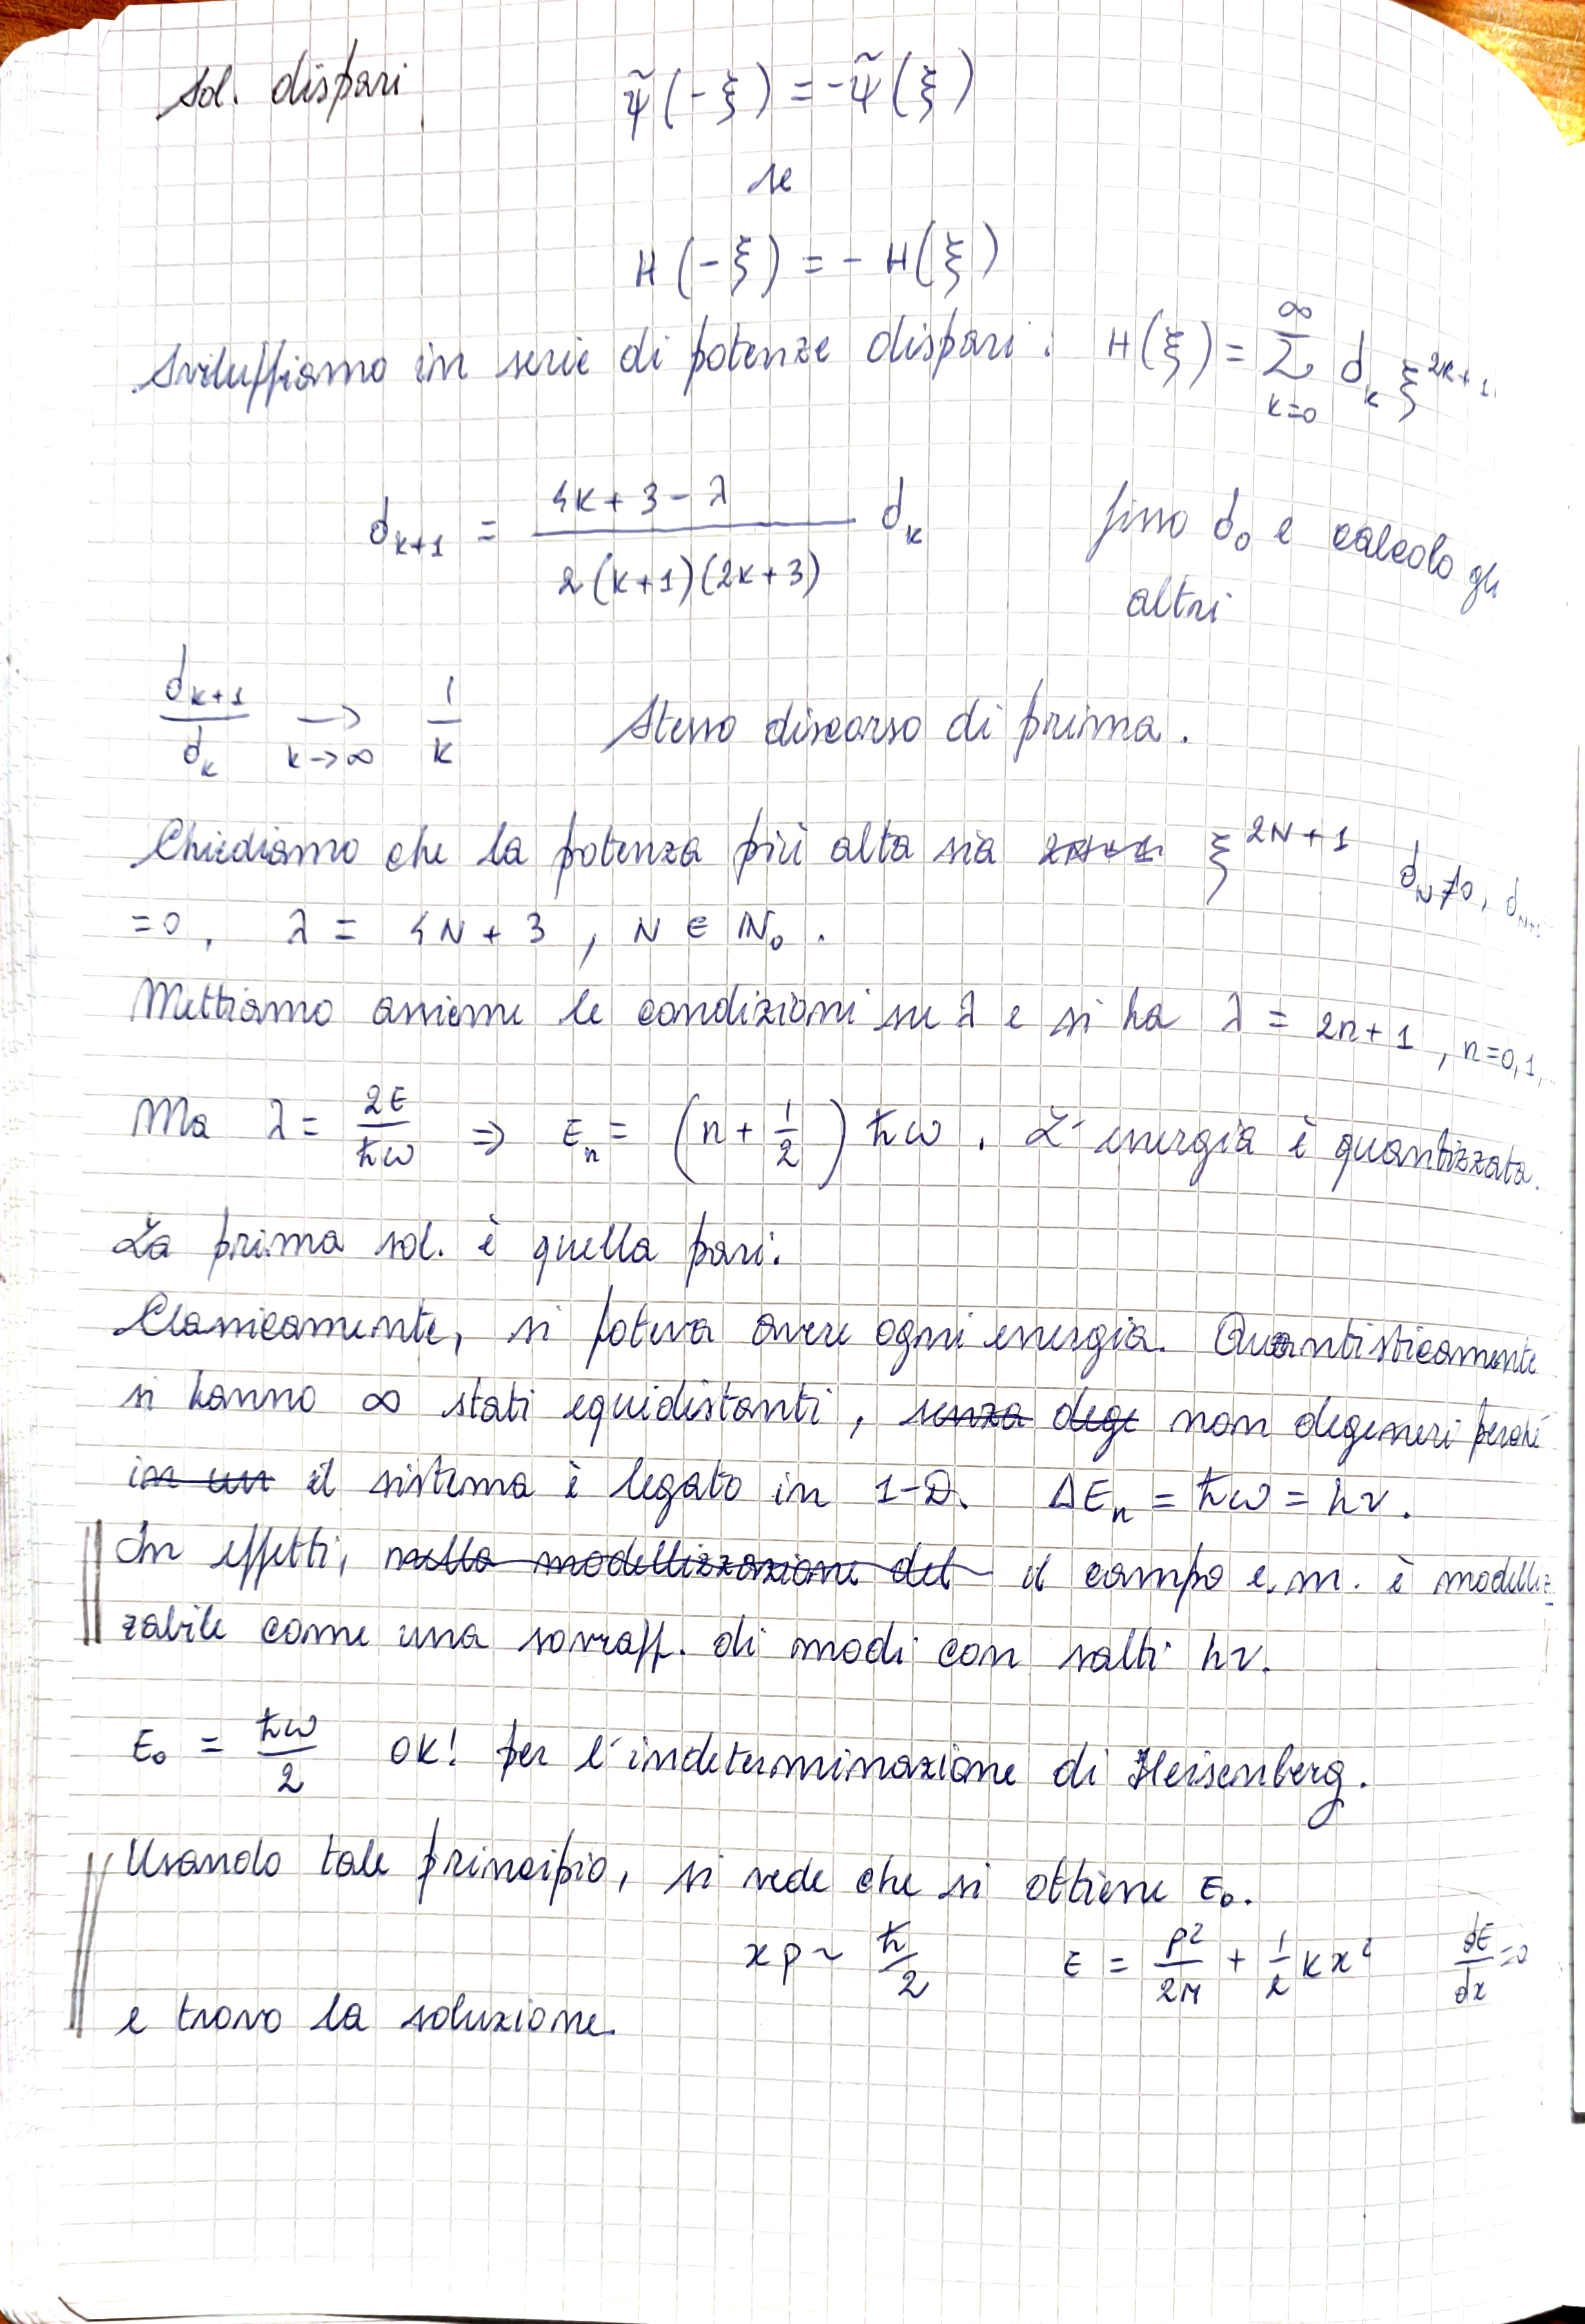 Sol. dispari ψ̃(-ξ) = -ψ̃(ξ)
se
H(-ξ) = - H(ξ)
Sviluppiamo in serie di potenze dispari: H(ξ) = Σ_{k=0}^{∞} d_k ξ^{2k+1}
d_{k+1} = \frac{4k+3-λ}{2(k+1)(2k+3)} d_k fisso d_0 e calcolo gli
altri
\frac{d_{k+1}}{d_k} →_{k→∞} \frac{1}{k} Stesso discorso di prima.
Chiediamo che la potenza più alta sia ξ^{2N+1} d_N ≠ 0, d_{N+1}
=0, λ = 4N+3, N ∈ ℕ_0.
Mettiamo assieme le condizioni su λ e si ha λ = 2n+1, n=0,1,...
Ma λ = \frac{2E}{ħω} ⇒ E_n = (n + \frac{1}{2}) ħω. L'energia è quantizzata.
La prima sol. è quella pari.
Classicamente, si poteva avere ogni energia. Quantisticamente
si hanno ∞ stati equidistanti, ~~senza dege~~ non degeneri perché
~~in un~~ il sistema è legato in 1-D. ΔE_n = ħω = hν.
In effetti, ~~nella modellizzazione del~~ il campo e.m. è modelliz
zabile come una sovrapp. di modi con salti hν.
E_0 = \frac{ħω}{2} OK! per l'indeterminazione di Heisenberg.
Usando tale principio, si vede che si ottiene E_0.
xp ~ \frac{ħ}{2} E = \frac{p^2}{2M} + \frac{1}{2} K x^2 \frac{dE}{dx} = 0
e trovo la soluzione.